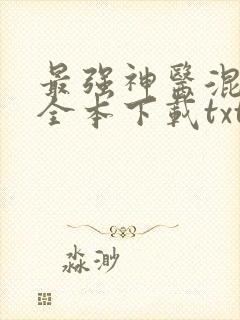 最强神醫混
全本下載txt
淼渺